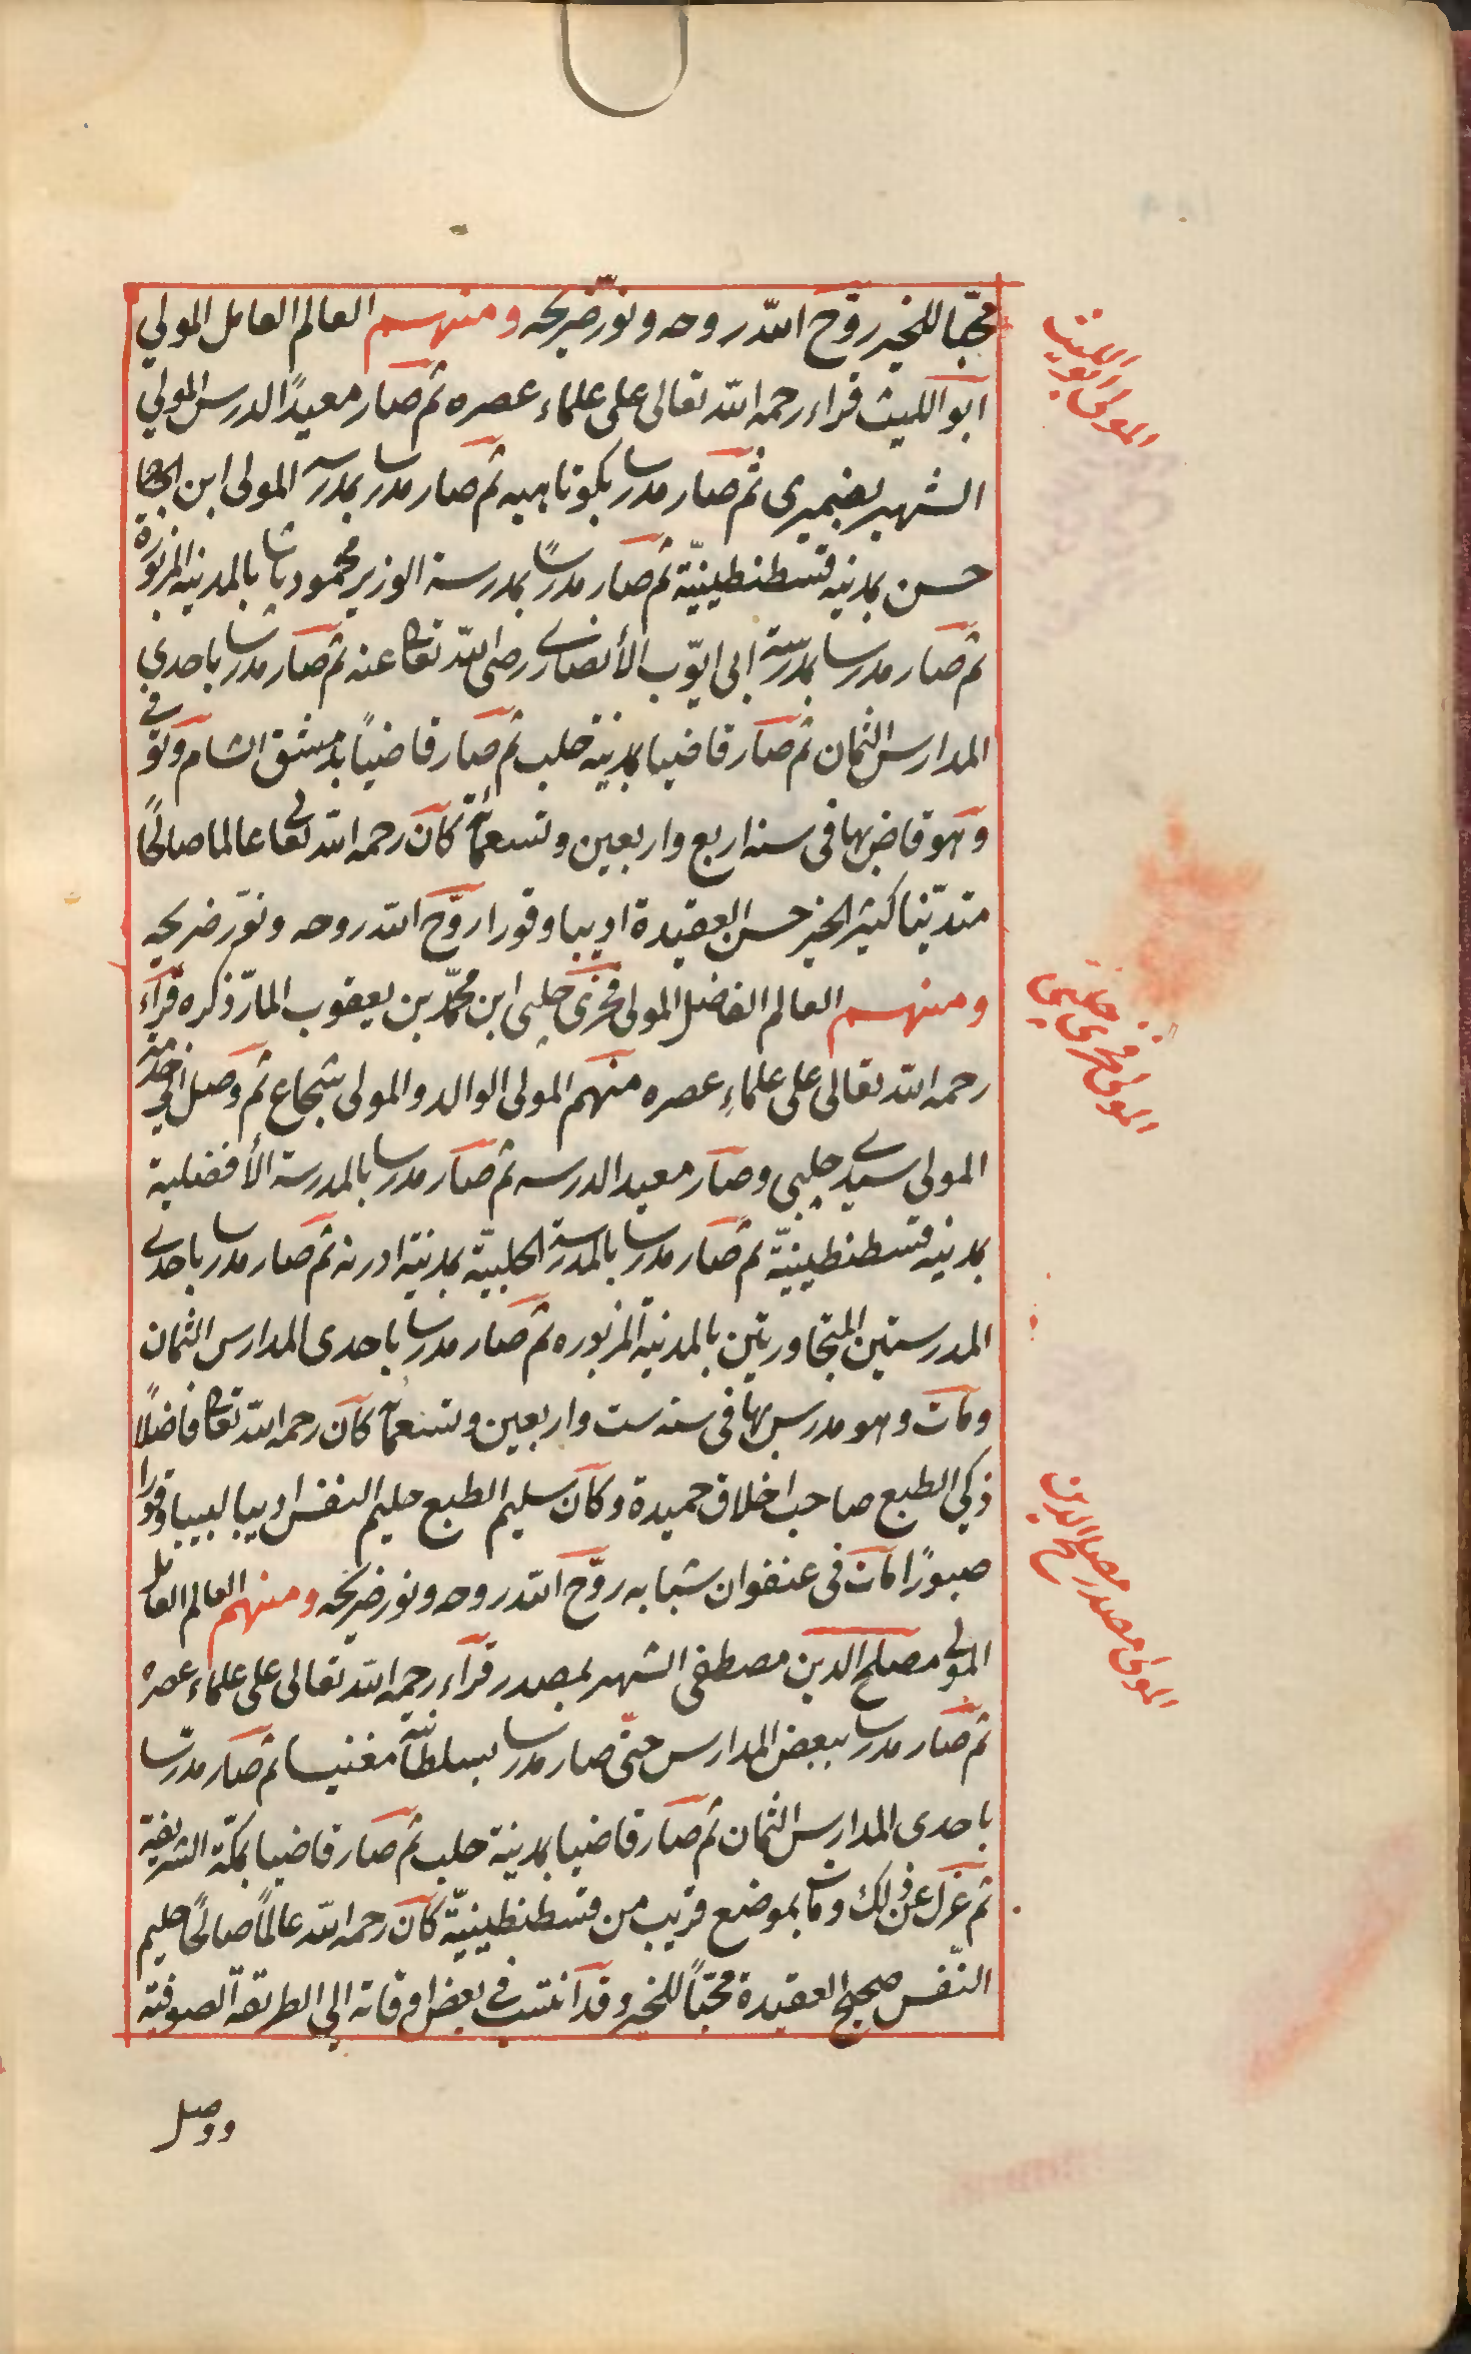 محبّا للخير روّح الله روحه ونوّر ضريحه ومنهم العالم العامل المولى
ابو الليث قراء رحمه الله تعالى على علماء عصره ثم صار معيدًا لدرس المولى
الشهير بضميرى ثم صار مدرسا بكوتاهيه ثم صار مدرسا بمدرسة المولى ابن الحاج
حسن بمدينه قسطنطينيّة ثم صار مدرسًا بمدرسة الوزير محمود پاشا بالمدينه المزبورة
ثم صار مدرسا بمدرسة ابى ايّوب الأنصارى رضى الله تعالى عنه ثم صار مدرسا باحدى
المدارس الثمان ثم صار قاضيا بمدينة حلب ثم صار قاضيًا بدمشق الشام وتوفى
وهو قاض بها فى سنه اربع واربعين وتسعمائة كان رحمه الله تعالى عالما صالحًا
متديّنا كثير الخير حسن العقيدة اديبا وقورا روّح الله روحه ونوّر ضريحه
ومنهم العالم الفاضل المولى فخرى چلبى ابن محمّد بن يعقوب المارّ ذكره قراء
رحمه الله تعالى على علماءِ عصره منهم المولى الوالد والمولى شجاع ثم وصل الى خدمة
المولى سيدى چلبى وصار معيد الدرسه ثم صار مدرسا بالمدرسة الأفضلية
بمدينه قسطنطينيّة ثم صار مدرسا بالمدرسة الحلبيّة بمدينة ادرنه ثم صار مدرسا باحدى
المدرستين المتجاورتين بالمدينة المزبوره ثم صار مدرسا باحدى المدارس الثمان
ومات وهو مدرس بها فى سنه ست واربعين وتسعمائة كان رحمه الله تعالى فاضلًا
ذكى الطبع صاحب اخلاق حميدة وكان سليم الطبع حليم النفس اديبا لبيبا وقورا
صبورًا مات فى عنفوان شبابه روّح الله روحه ونور ضريحه ومنهم العالم العامل
المولى مصلح الدين مصطفى الشهير بمصدر قراء رحمه الله تعالى على علماء عصره
ثم صار مدرسا ببعض المدارس حتّى صار مدرسا بسلطانيّة مغنيسا ثم صار مدرّسا
باحدى المدارس الثمان ثم صار قاضيا بمدينة حلب ثم صار قاضيا بمكّة الشريفة
ثم عزل عن ذلك ومات بموضع قريب من قسطنطينيّة كان رحمه الله عالمًا صالحًا حليم
النّفس صحيح العقيدة محبّاً للخير وقد انتسب فى بعض اوقاته الى الطريقة الصوفية
ووصل
المولى ابو الليث
المولى فخرى چلبى
المولى مصدر مصلح الدين